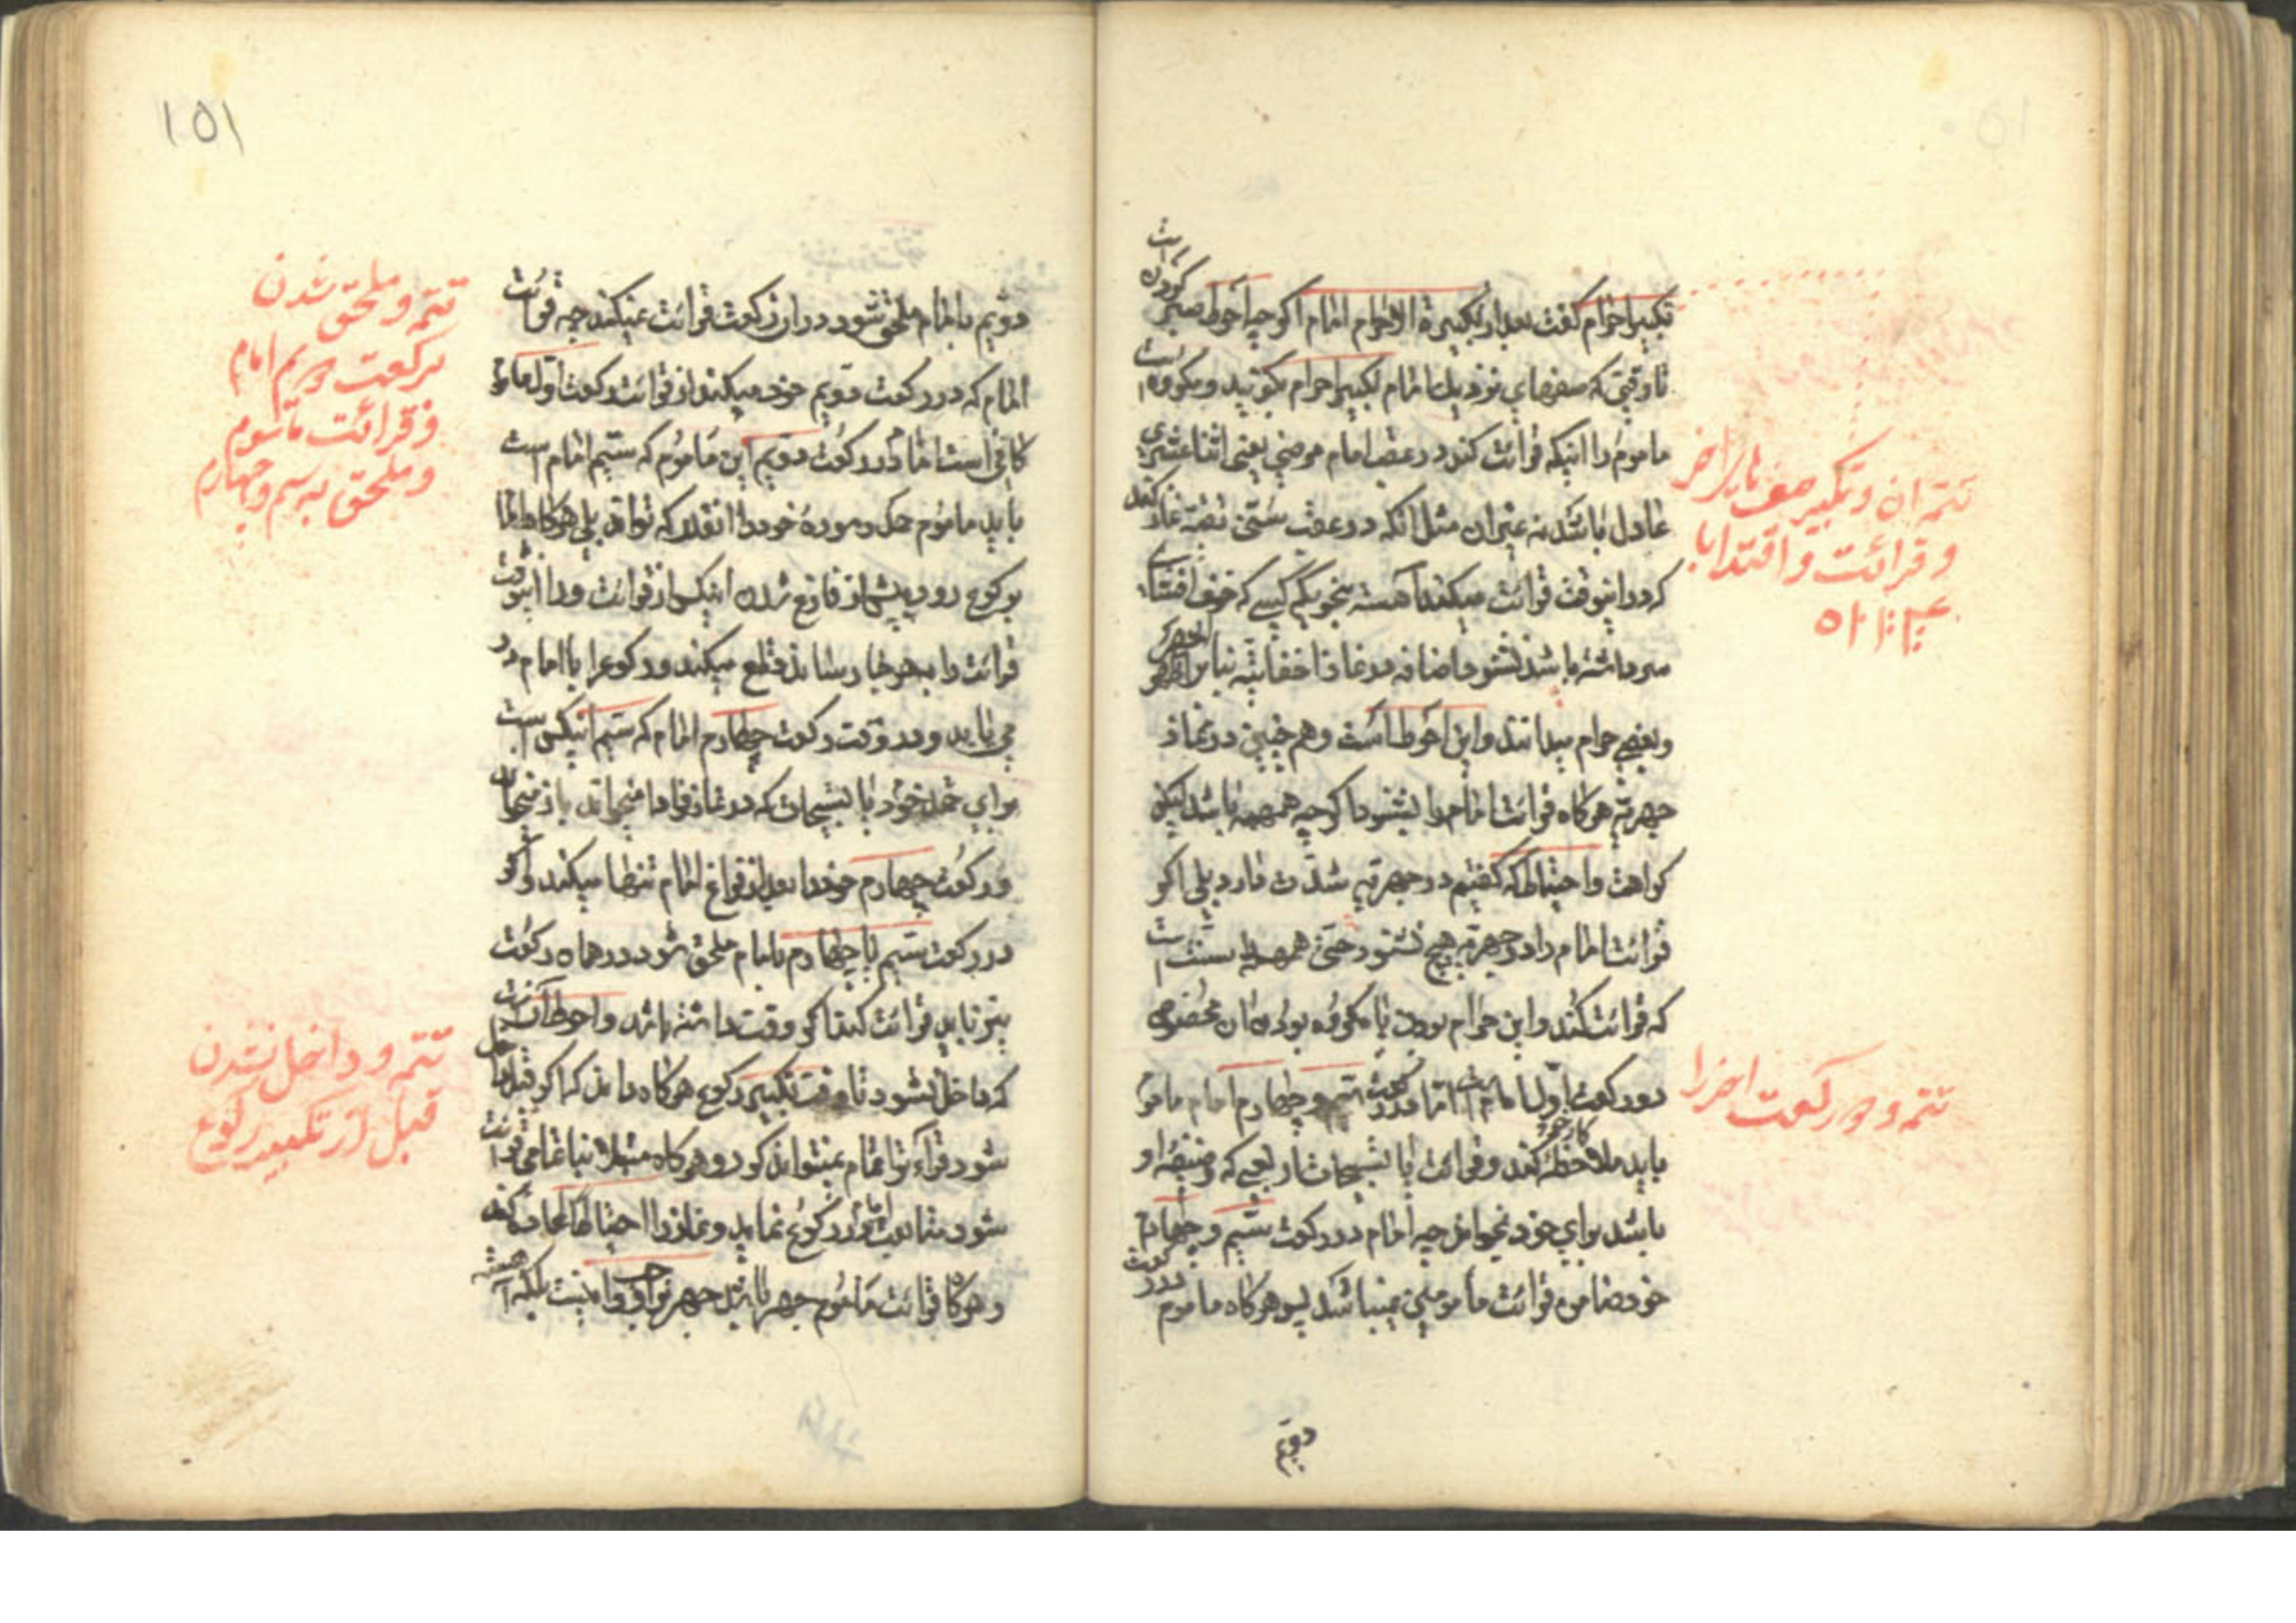 تکبیر احرام گفت بعد از تکبیرة الاحرام امام اگر چه احوط صبر کردن است
تا وقتی که صفهای نزدیک امام تکبیر احرام بگویند و مکروه است
ماموم را اینکه قرائت کند در عقب امام مرضی یعنی اثنا عشری
عادل باشد نه غیر ان مثل انکه در عقب سنی تقیة نماز کند
که در اینوقت قرائت میکند آهسته بنحویکه کسی که خوف افشای
سر داشته باشد نشنود خاصه در نماز اخفاتیه بنابر اظهر
و بعضی حرام میدانند و این احوط است و هم چنین در نماز
جهریه هرگاه قرائت امام را بشنود اگر چه همهمه باشد لیکن
کراهت و احتیاط که گفتیم در جهریه شدت دارد بلی اگر
قرائت امام را در جهریه هیچ نشنود حتی همهمه سنت است
که قرائت کند و این حرام بودن یا مکروه بودن ان مخصوص
دو رکعت اول امام است اما در رکعت سیم و چهارم امام ماموم
باید ملاحظه کار خود کند و قرائت یا تسبیحات اربعی که وظیفه او
باشد برای خود بخواند چه امام در رکعت سیم و چهارم
خود ضامن قرائت مأمومین نمیباشد پس هرگاه ماموم در رکعت
دویم
تتمه ان و تکبیر صف نا براخر
و قرائت و اقتدا با
تتمه و دو رکعت اخر را
۱۵۱
دویم با امام ملحق شود در ان رکعت قرائت نمیکند چه قرائت
امام که در رکعت دویم خود میکند از قرائت رکعت اول ماموم
کافی است اما در رکعت دویم این مأموم که سیم امام است
باید ماموم حمد و سوره خود را انقدر که تواند بلی هرگاه امام
برکوع رود پیش از فارغ شدن اینکس از قرائت و در اینوقت
قرائت را بهر جا رساند قطع میکند و رکوع را با امام در
می یابد و در وقت رکعت چهارم امام که سیم اینکس است
برای خود حمد یا تسبیحات که در نماز فرادا میخواند باز میخواند
و رکعت چهارم خود را بعد از فراغ امام تنها میکند و اگر
در رکعت سیم یا چهارم با امام ملحق شود در همان رکعت
نیز باید قرائت کند اگر وقت داشته باشد و احوط آنست
که داخل نشود تا وقت تکبیر رکوع هرگاه داند که اگر قبل داخل
شود قرائت را تمام نمیتواند کرد و هرگاه مبتلا بناتمامی قرائت
شود متابعت او در رکوع نماید و نماز را احتیاطا اعاده کند
و هرگاه قرائت مأموم جهر باشد جهر بر او واجب نیست بلکه آهسته
تتمه و ملحق شدن
برکعت دویم امام
و قرائت مأموم
و ملحق به سیم و چهارم
تتمه و داخل نشدن
قبل از تکبیر رکوع